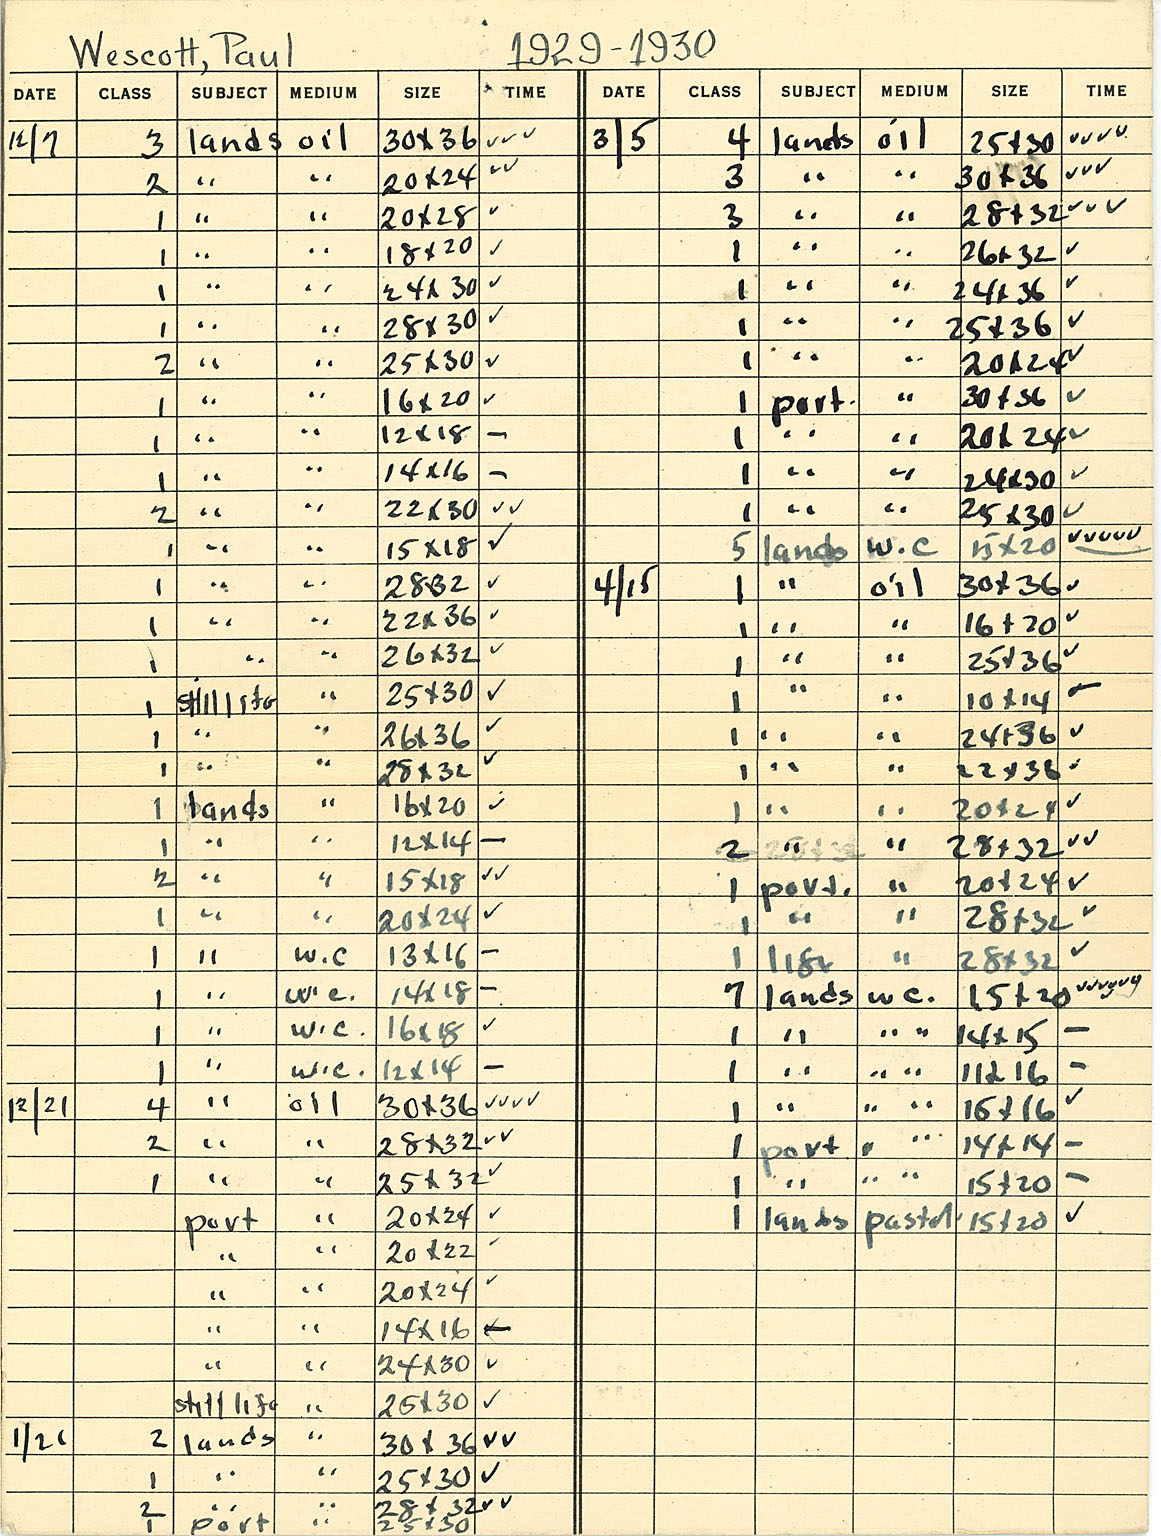 Wescott, Paul 1929-1930
DATE CLASS SUBJECT MEDIUM SIZE TIME
12/7 3 lands oil 30x36 ✓✓✓
2 " " 20x24 ✓✓
1 " " 20x28 ✓
1 " " 18x20 ✓
1 " " 24x30 ✓
1 " " 28x30 ✓
2 " " 25x30 ✓
1 " " 16x20 ✓
1 " " 12x18 –
1 " " 14x16 –
2 " " 22x30 ✓✓
1 " " 15x18 ✓
1 " " 2832 ✓
1 " " 22x36 ✓
1 " " 26x32 ✓
1 still life " 25x30 ✓
1 " " 26x36 ✓
1 " " 28x32 ✓
1 lands " 16x20 ✓
1 " " 12x14 –
2 " " 15x18 ✓✓
1 " " 20x24 ✓
1 " w.c 13x16 –
1 " w.c. 14x18 –
1 " w.c. 16x18 ✓
1 " w.c. 12x14 –
12/21 4 " oil 30x36 ✓✓✓✓
2 " " 28x32 ✓✓
1 " " 25x32 ✓
port " 20x24 ✓
" " 20x22 ✓
" " 20x24 ✓
" " 14x16 –
" " 24x30 ✓
still life " 25x30 ✓
1/21 2 lands " 30x36 ✓✓
1 " " 25x30 ✓
2 " " 28x32 ✓✓
1 port " 25x30
DATE CLASS SUBJECT MEDIUM SIZE TIME
3/5 4 lands oil 25x30 ✓✓✓✓
3 " " 30x36 ✓✓✓
3 " " 28x32 ✓✓✓
1 " " 26x32 ✓
1 " " 24x36 ✓
1 " " 25x36 ✓
1 " " 20x24 ✓
1 port. " 30x36 ✓
1 " " 20x24 ✓
1 " " 24x30 ✓
1 " " 25x30 ✓
5 lands w.c 15x20 ✓✓✓✓✓
4/15 1 " oil 30x36 ✓
1 " " 16x20 ✓
1 " " 25x36 ✓
1 " " 10x14 –
1 " " 24x36 ✓
1 " " 22x36 ✓
1 " " 20x24 ✓
2 " " 28x32 ✓✓
1 port. " 20x24 ✓
1 " " 28x32 ✓
1 life " 28x32 ✓
7 lands w c. 15x20 ✓✓✓✓✓✓✓
1 " " " 14x15 –
1 " " " 11x16 –
1 " " " 16x16 ✓
1 port " " 14x14 –
1 " " " 15x20 –
1 lands pastel 15x20 ✓